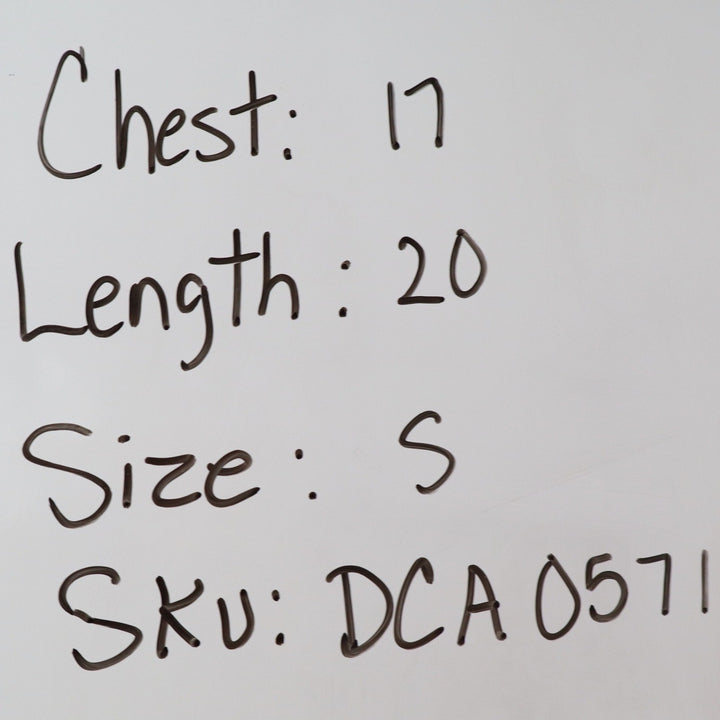 Chest: 17
Length: 20
Size: S
SKU: DCA 0571